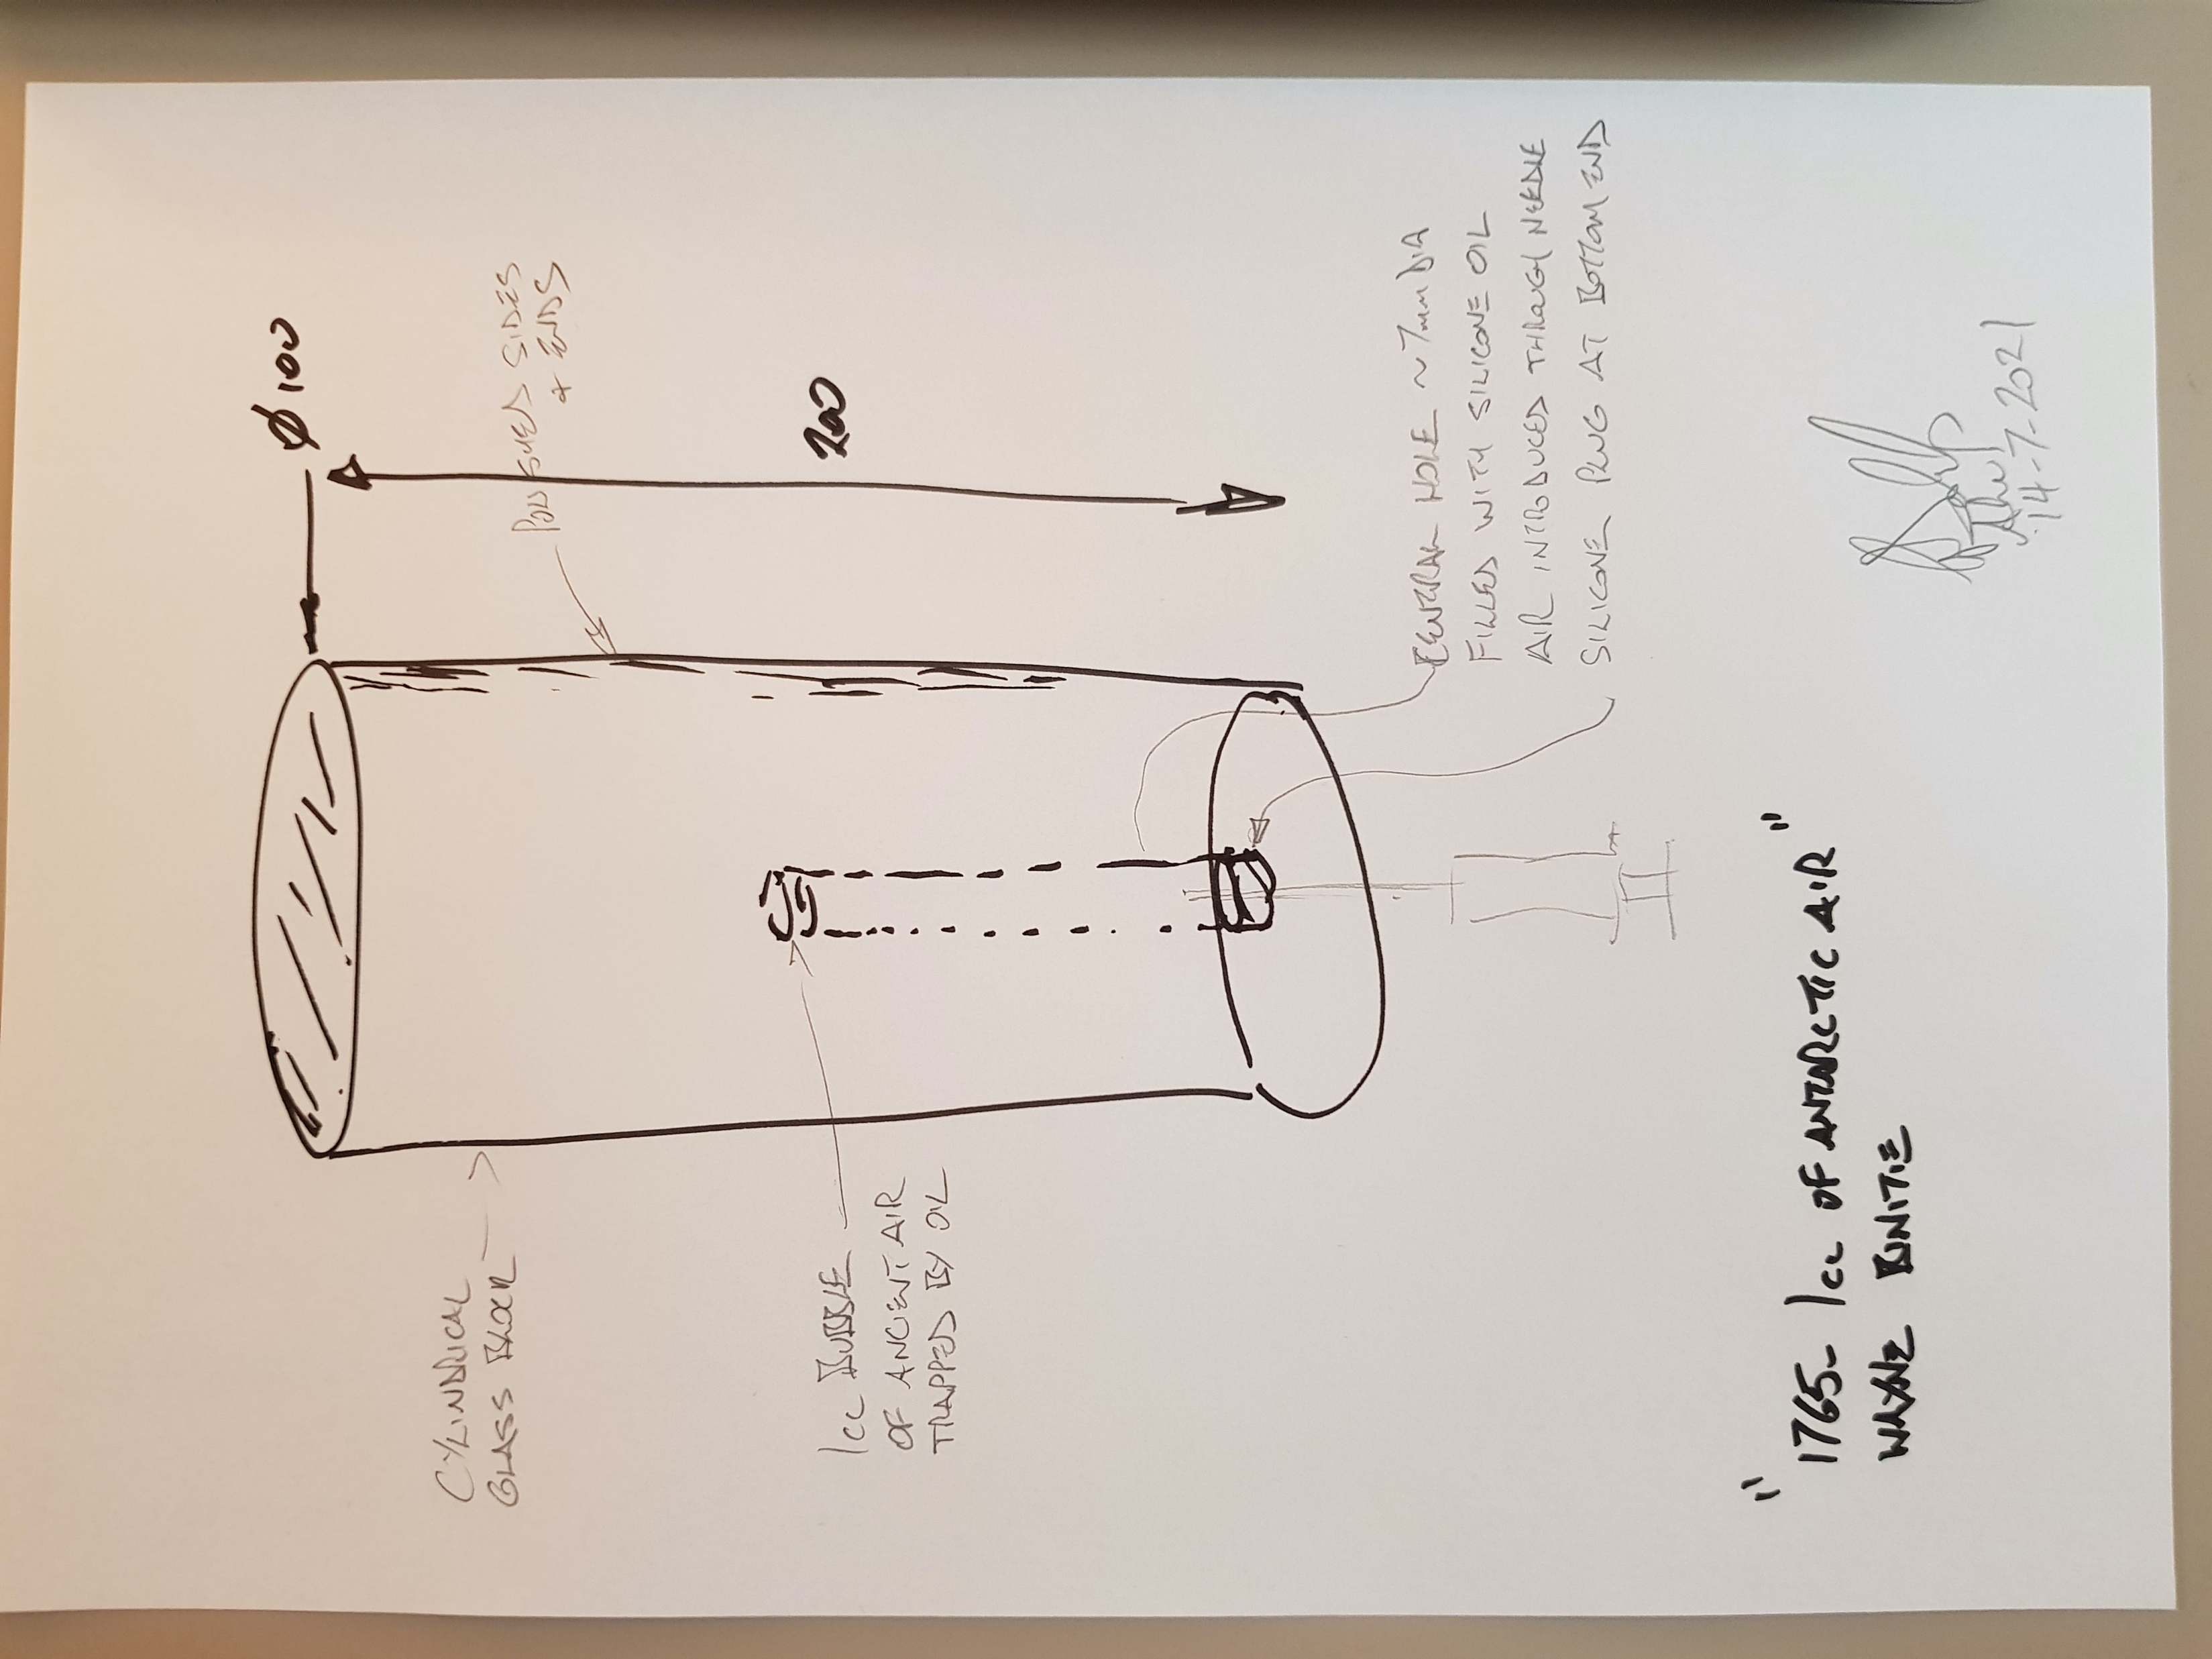 Ø100
POLISHED SIDES
+ ENDS
200
CYLINDRICAL
GLASS BLOCK
1CC BUBBLE
OF ANCIENT AIR
TRAPPED BY OIL
CENTRAL HOLE ~ 7mm DIA
FILLED WITH SILICONE OIL
AIR INTRODUCED THROUGH NEEDLE
SILICONE PLUG AT BOTTOM END
"1765- 1CC OF ANTARCTIC AIR"
WAYNE BINITIE
14-7-2021